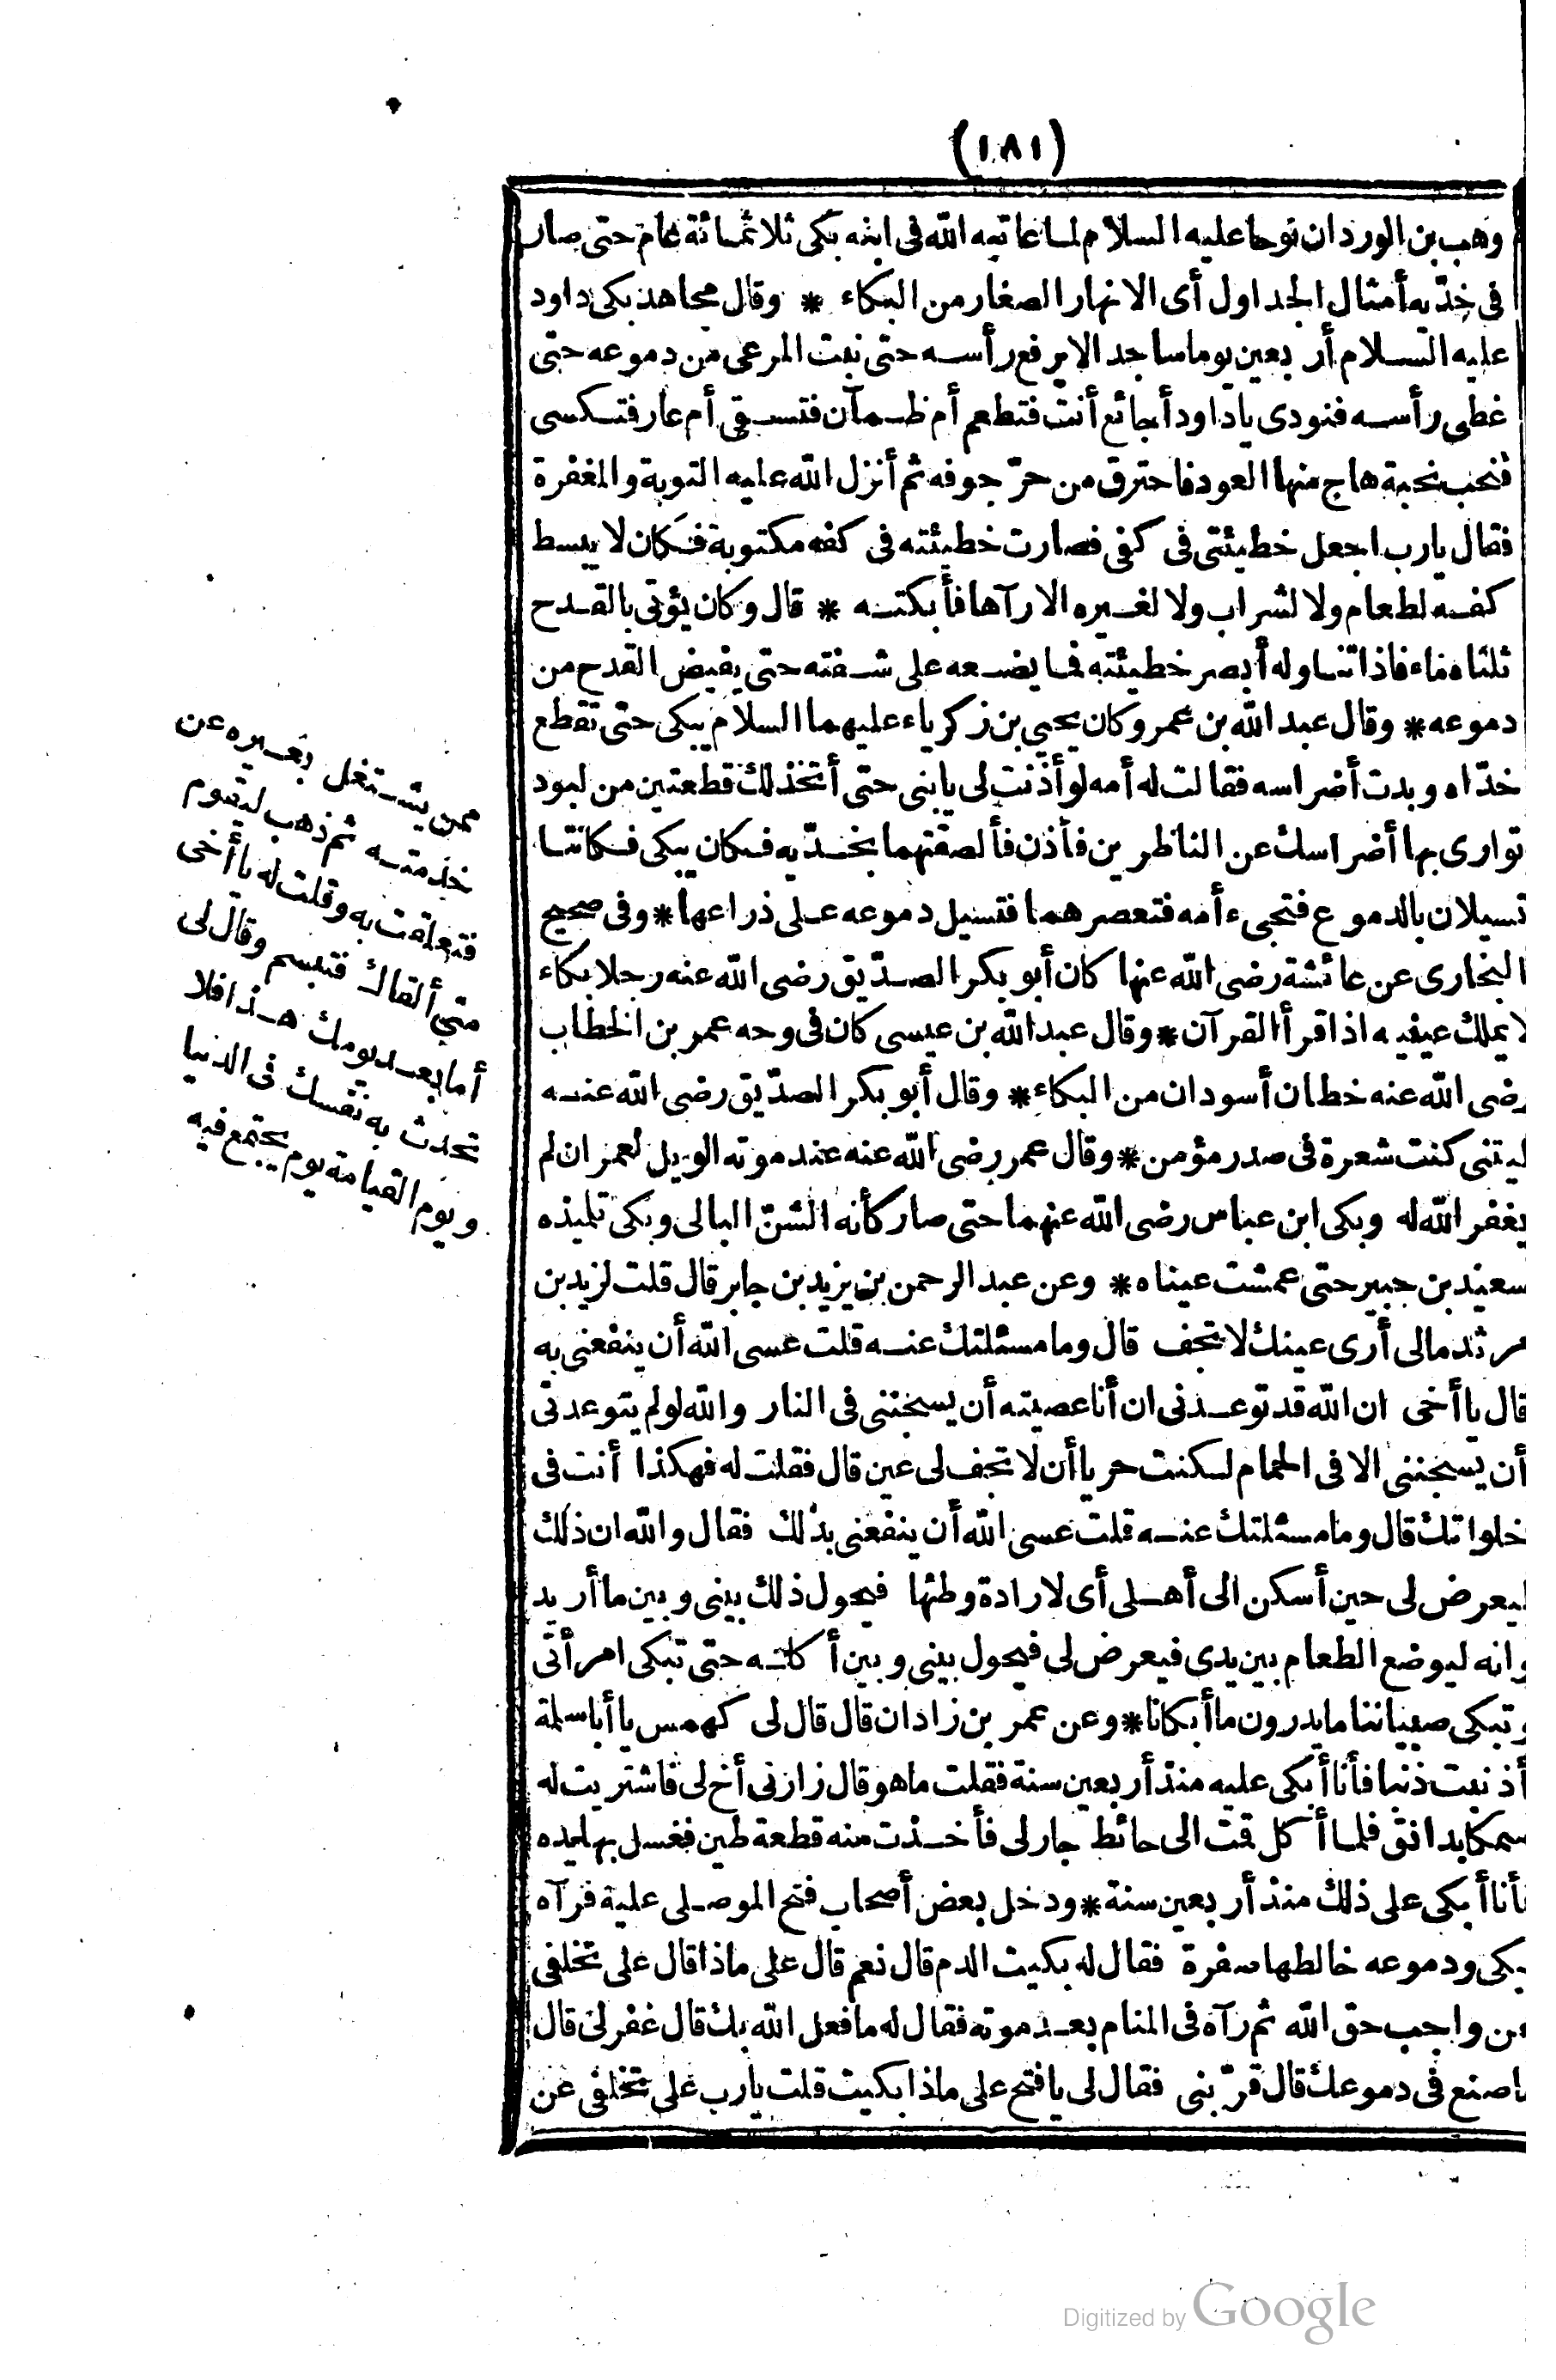 (١٨١)
وهب بن الورد ان نوحا عليه السلام لما عاتبه الله فى ابنه بكى ثلاثمائة عام حتى صار
فى خدّيه أمثال الجداول أى الانهار الصغار من البكاء * وقال مجاهد بكى داود
عليه السلام أربعين يوما ساجدا لا يرفع رأسه حتى نبت المرعى من دموعه حتى
غطى رأسه فنودى يا داود أجائع أنت فتطعم أم ظمآن فتسقى أم عار فتكسى
فنحب نحبة هاج منها العود فاحترق من حرّ جوفه ثم أنزل الله عليه التوبة والمغفرة
فقال يارب اجعل خطيئتى فى كفى فصارت خطيئته فى كفه مكتوبة فكان لا يبسط
كفه لطعام ولا لشراب ولا لغيره الا رآها فأبكته * قال وكان يؤتى بالقدح
ثلثاه ماء فاذا تناوله أبصر خطيئته فما يضعه على شفته حتى يفيض القدح من
دموعه * وقال عبد الله بن عمر وكان يحيى بن زكرياء عليهما السلام يبكى حتى تقطع
خدّاه وبدت أضراسه فقالت له أمه لو أذنت لى يابنى حتى أتخذ لك قطعتين من لبود
توارى بها أضراسك عن الناظرين فأذن فألصقتهما بخدّيه فكان يبكى فكانتا
تسيلان بالدموع فتجىء أمه فتعصرهما فتسيل دموعه على ذراعها * وفى صحيح
البخارى عن عائشة رضى الله عنها كان أبو بكر الصدّيق رضى الله عنه رجلا بكاء
لا يملك عينيه اذا قرأ القرآن * وقال عبد الله بن عيسى كان فى وجه عمر بن الخطاب
رضى الله عنه خطان أسودان من البكاء * وقال أبو بكر الصدّيق رضى الله عنه
ليتنى كنت شعرة فى صدر مؤمن * وقال عمر رضى الله عنه عند موته الويل لعمر ان لم
يغفر الله له وبكى ابن عباس رضى الله عنهما حتى صار كأنه الشنّ البالى وبكى تلميذه
سعيد بن جبير حتى عمشت عيناه * وعن عبد الرحمن بن يزيد بن جابر قال قلت لزيد بن
مرثد مالى أرى عينك لا تجف قال وما مسئلتك عنه قلت عسى الله أن ينفعنى به
قال يا أخى ان الله قد توعدنى ان أنا عصيته أن يسجننى فى النار والله لو لم يتوعدنى
أن يسجننى الا فى الحمام لكنت حريا أن لا تجف لى عين قال فقلت له فهكذا أنت فى
خلواتك قال وما مسئلتك عنه قلت عسى الله أن ينفعنى بذلك فقال والله ان ذلك
ليعرض لى حين أسكن الى أهلى أى لارادة وطئها فيحول ذلك بينى وبين ما أريد
وانه ليوضع الطعام بين يدى فيعرض لى فيحول بينى وبين أكله حتى تبكى امرأتى
وتبكى صبياننا ما يدرون ما أبكانا * وعن عمر بن زادان قال قال لى كهمس يا أبا سلمة
أذنبت ذنبا فأنا أبكى عليه منذ أربعين سنة فقلت ما هو قال زارنى أخ لى فاشتريت له
سمكا بدانق فلما أكل قمت الى حائط جار لى فأخذت منه قطعة طين فغسل بها يده
فأنا أبكى على ذلك منذ أربعين سنة * ودخل بعض أصحاب فتح الموصلى عليه فرآه
يبكى ودموعه خالطها صفرة فقال له بكيت الدم قال نعم قال على ماذا قال على تخلفى
عن واجب حق الله ثم رآه فى المنام بعد موته فقال له ما فعل الله بك قال غفر لى قال
ما صنع فى دموعك قال قرّبنى فقال لى يا فتح على ماذا بكيت قلت يارب على تخلفى عن
ممن يشتغل بغيره عن
خدمته ثم ذهب ليقوم
فتعلقت به وقلت له يا أخى
متى ألقاك فتبسم وقال لى
أما بعد يومك هذا فلا
تحدث به نفسك فى الدنيا
ويوم القيامة يوم يجتمع فيه
Digitized by Google